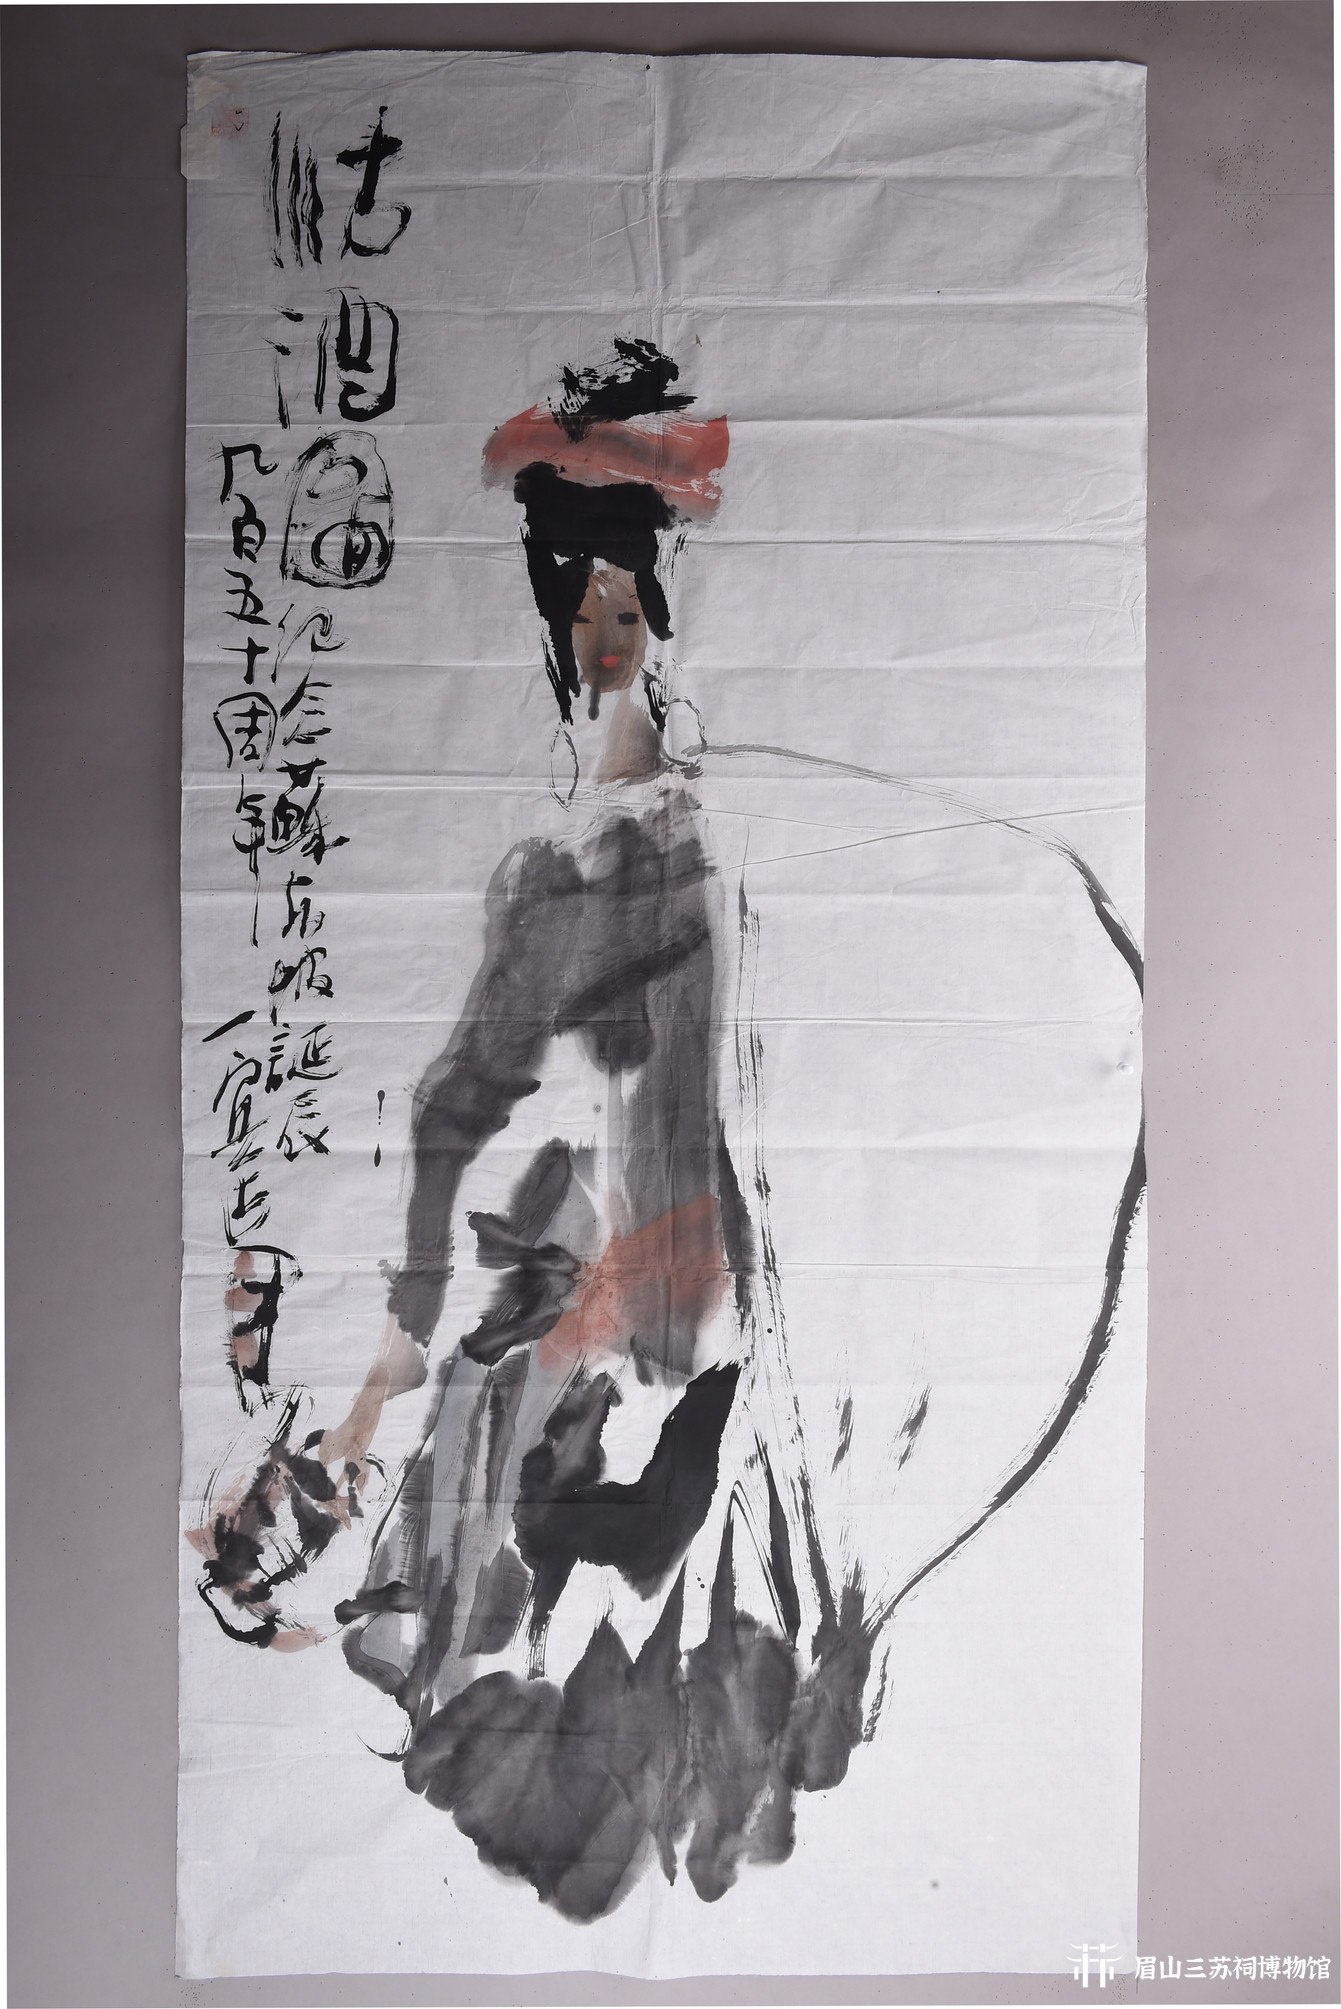 沽酒图
纪念蘇东坡誕辰
九百五十周年
眉山三苏祠博物馆